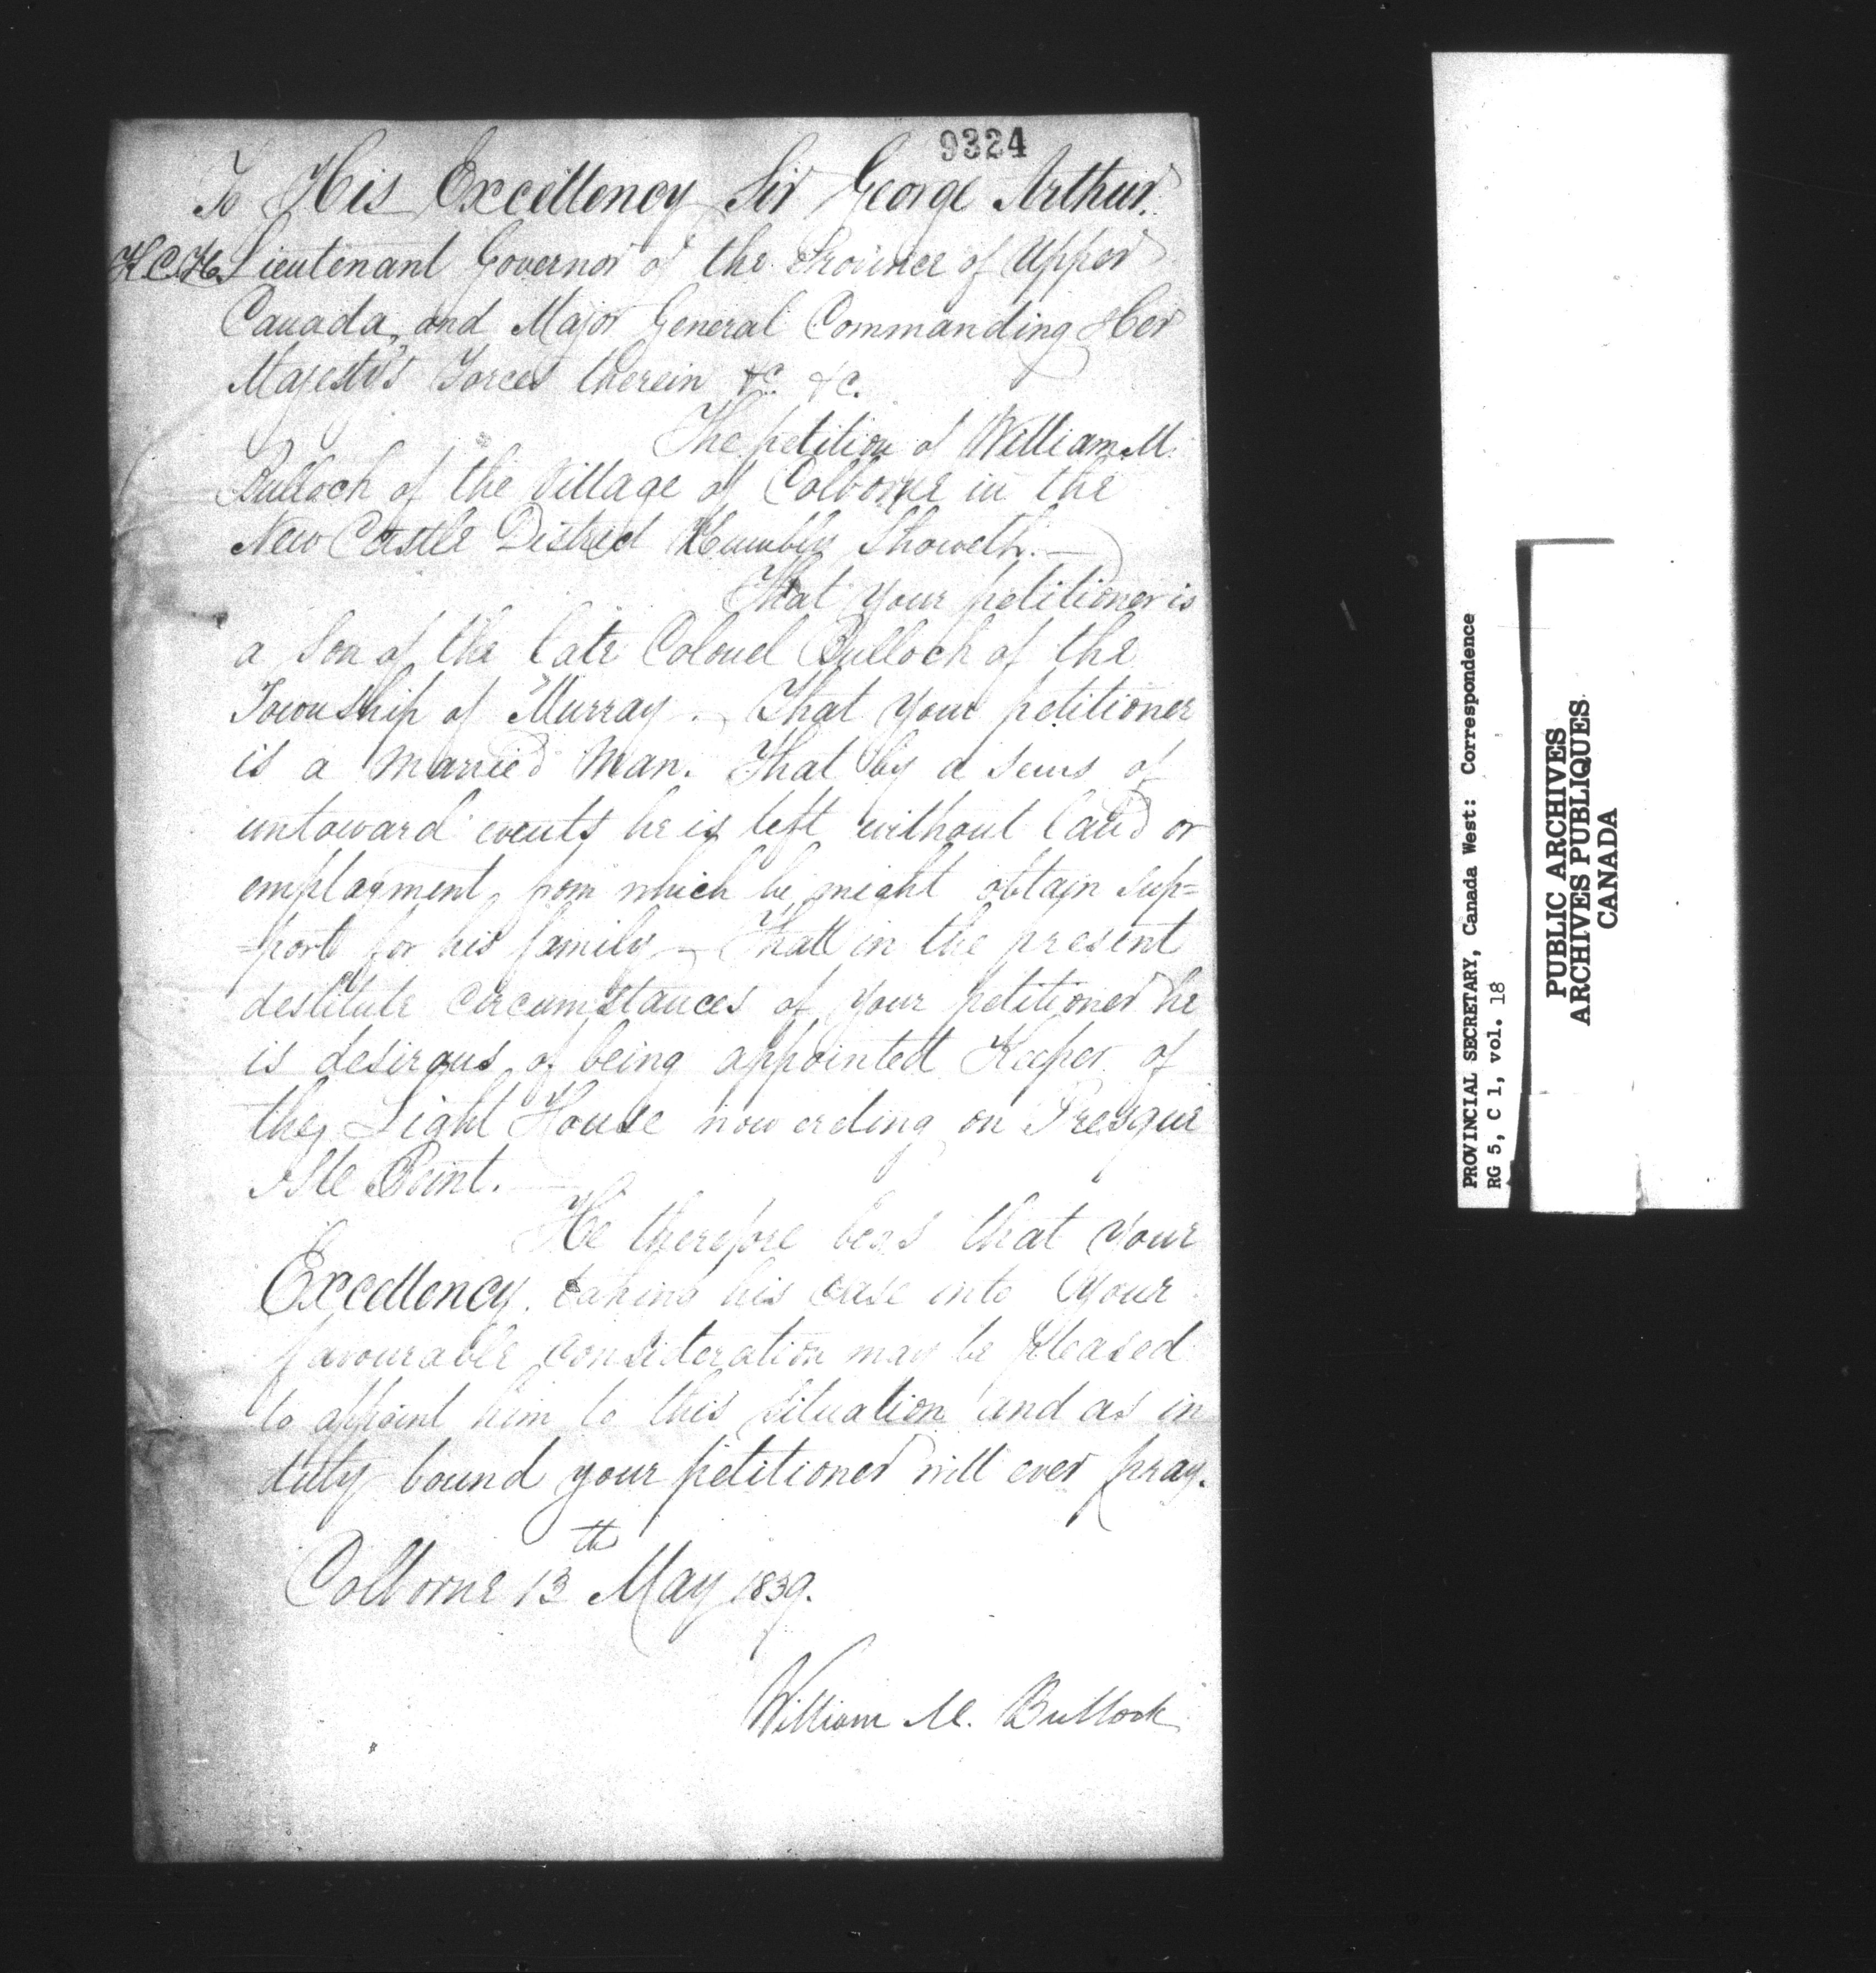 9324
To His Excellency Sir George Arthur.
K.C.H. Lieutenant Governor of the Province of Upper
Canada, and Major General Commanding Her
Majesty's Forces therein &c. &c.
The petition of William M.
Bulloch of the Village of Colborne in the
New Castle District Humbly Showeth.—
That your petitioner is
a Son of the late Colonel Bulloch of the
Township of Murray. – That your petitioner
is a Married Man. That by a series of
untoward events he is left without land or
employment, from which he might obtain sup=
=port for his family – That in the present
destitute circumstances of your petitioner he
is desirous of being appointed Keeper of
the Light House now erecting on Presque
Isle Point.—
He therefore begs that your
Excellency. taking his case into your
favourable consideration may be pleased
to appoint him to this situation and as in
duty bound your petitioner will ever pray.
Colborne 13th May 1839.
William M. Bullock
PROVINCIAL SECRETARY, Canada West: Correspondence
RG 5, C 1, vol. 18
PUBLIC ARCHIVES
ARCHIVES PUBLIQUES
CANADA